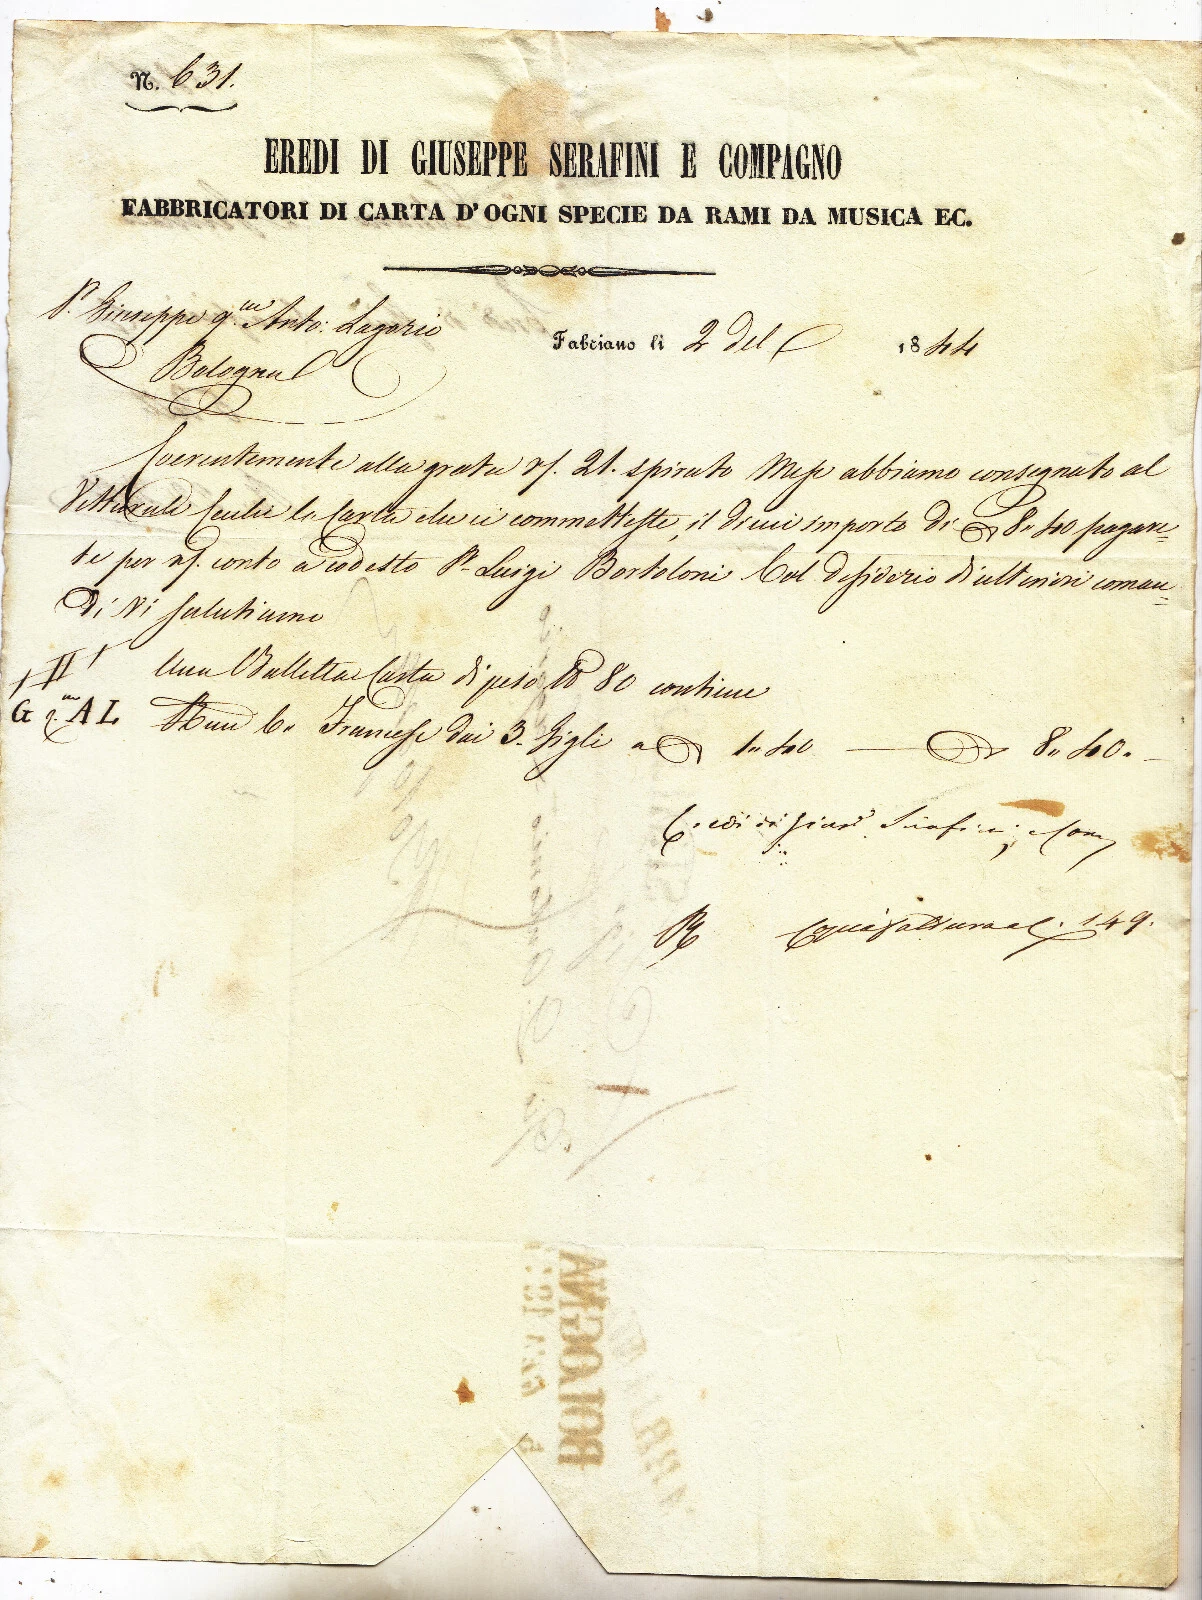 N. 631.
EREDI DI GIUSEPPE SERAFINI E COMPAGNO
FABBRICATORI DI CARTA D'OGNI SPECIE DA RAMI DA MUSICA EC.
Sr. Giuseppe q.m Anto: Lagorio
Bologna
Fabriano li 2 del 1844
Coerentemente alla grata vs. 21. spirato Mese abbiamo consegnato al
Vetturale la Carta che ci commetteste, il di cui importo di 8.. 40 pagare=
te per ns. conto a codesto Sr. Luigi Bortoloni Col desiderio d'ulteriori coman=
di Vi salutiamo
Una Balletta Carta di peso lb 80 continue
G q.m A L Rme 6.. Francese dai 3. Gigli a 1.. 40 — 8.. 40..
Eredi di Gius. Serafini e Com
149.
BOLOGNA